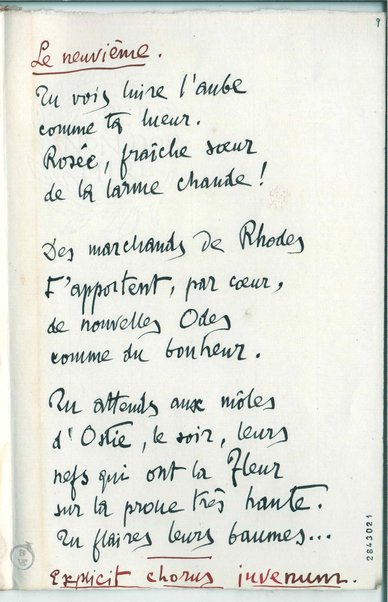 9
Le neuvième.
Tu vois luire l'aube
comme ta lueur.
Rosée, fraîche sœur
de la larme chaude !
Des marchands de Rhodes
T'apportent, par cœur,
de nouvelles Odes
comme du bonheur.
Tu attends aux môles
d'Ostie, le soir, leurs
nefs qui ont la Fleur
sur la proue très haute.
Tu flaires leurs baumes...
Explicit chorus juvenum.
2843021